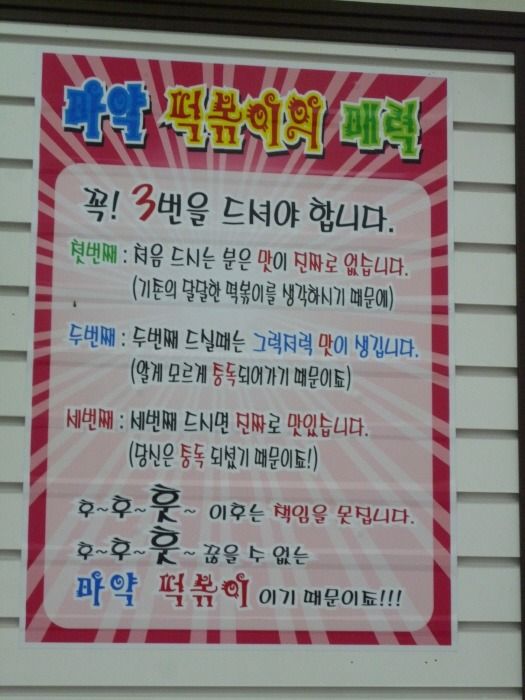 마약 떡볶이의 매력
꼭! 3번을 드셔야 합니다.
첫번째 : 처음 드시는 분은 맛이 진짜로 없습니다.
(기존의 달달한 떡볶이를 생각하시기 때문에)
두번째 : 두번째 드실때는 그럭저럭 맛이 생깁니다.
(알게 모르게 중독되어가기 때문이죠)
세번째 : 세번째 드시면 진짜로 맛있습니다.
(당신은 중독 되셨기 때문이죠!)
후~후~훗~ 이후는 책임을 못집니다.
후~후~훗~ 끊을 수 없는
마약 떡볶이 이기 때문이죠!!!